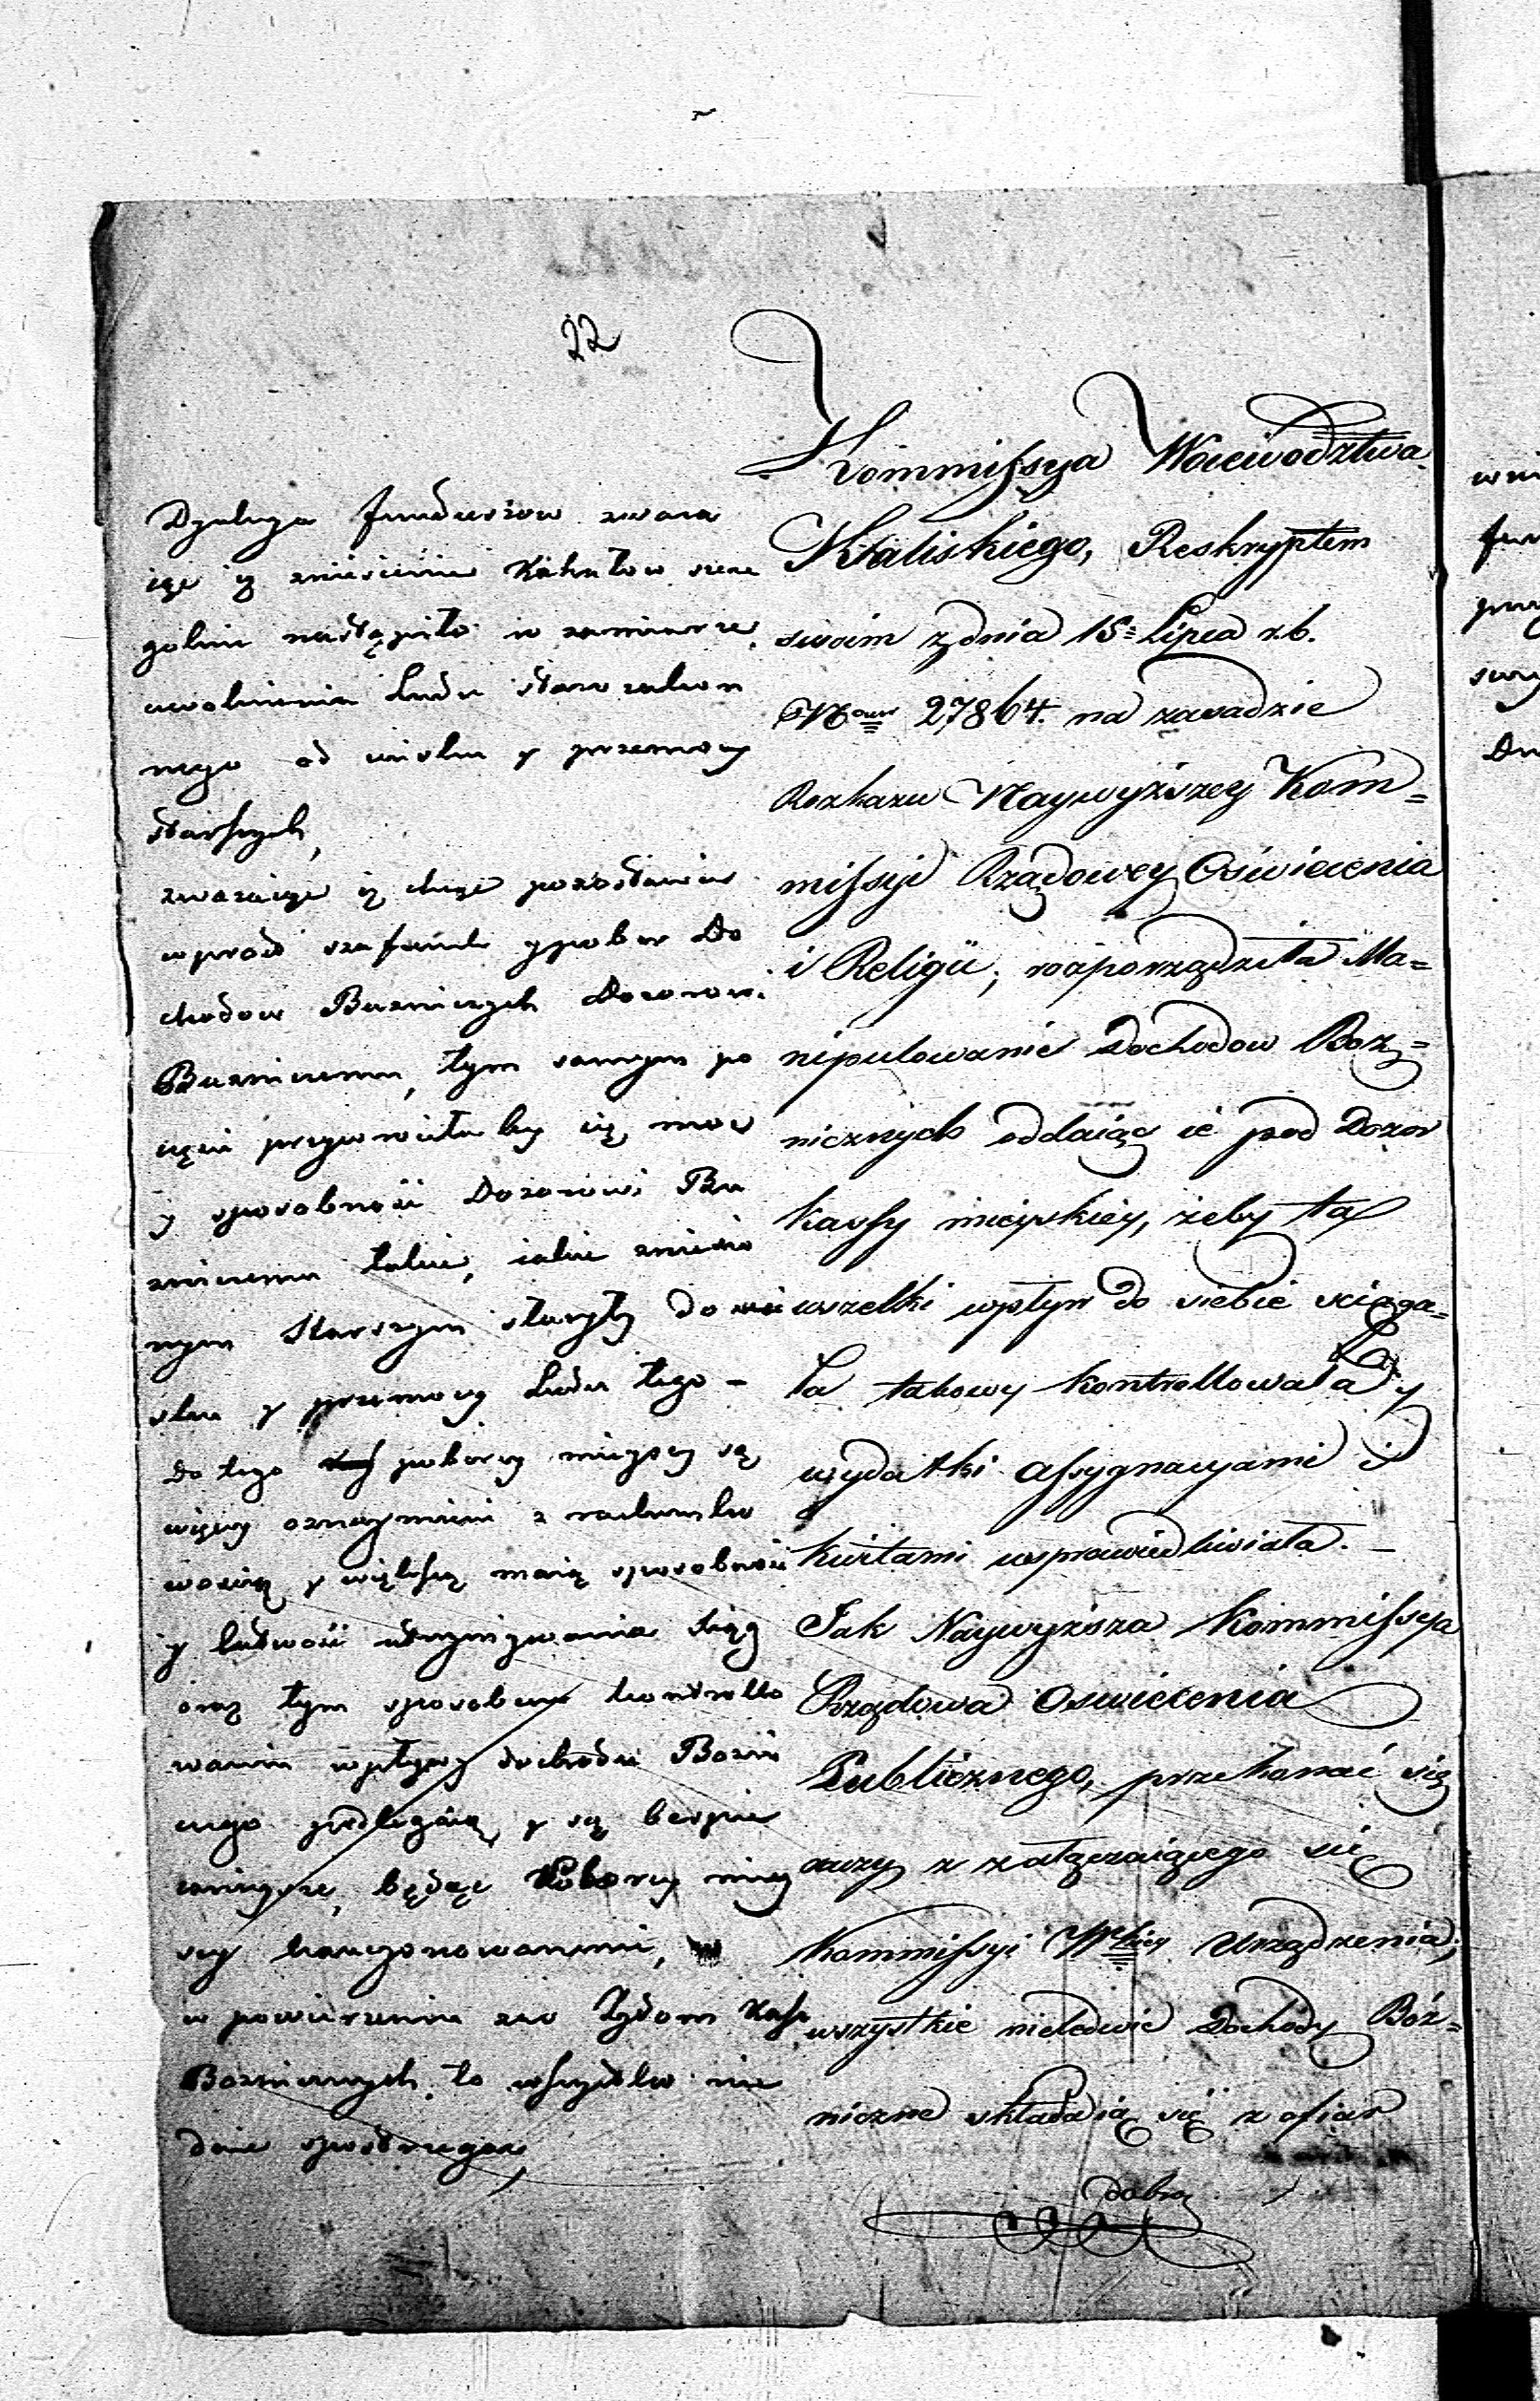 22
Kommissya Woiewodztwa
Kaliskiego, Reskryptem
swoim z dnia 15= Lipca r. b.
27864. na zasadzie
Rozkazu Naywyższey Kom=
missyi Rządowey Oświecenia
i Religii, rozporządziła Ma=
nipulowanie Dochodow Boż=
nicznych oddaiąc ie pod Dozor
kassy mieyskiey, żeby ta
wszelki wpływ do siebie sciąga=
ła takowy kontrollowała y
wydatki assygnacyami i
kwitami usprawiedliwiała. —
Jak Naywyższa Kommissya
Rządowa Oswiecenia
Publicznego, przekonać się
raczy z załączaiącego się
Kommissyi Urządzenia,
wszystkie nieledwie Dochody Boż=
niczne składaią się z ofiar
dobro
Dzaluga funduszow zwaza
iąc iż zniesienie Kahałow szcze
golnie nastąpiło w zamiarze
uwolnienia Ludu starozakon
nego od ucisku y przemocy
starszych,
zwazaiąc iż chcąc pozostawic
wprost szafunk y pobor Do
chodow Boznicznych Dozorowi
Bozniczemu, tym samym po
częsci przywrociłaby się moc
y sposobność Dozorowi Bo
zniczemu takie, iakie zniesio
nym Starszym słuzyły do uci
sku y przemocy Ludu tego –
do tego poborcy mieyscy są
więcy oznaymieni z rachunko
woscią y większą maią sposobność
y łatwość utrzymywania Xiąg
oraz tym sposobem kontrollo
wania wpływy dochodu Bozni
cznego podlegaią y są bespie
cznieysze, będąc Poborcy miey
scy kaucyonowanemi,
w powierzeniu zas Zydom Kass
Boznicznych to wszystko nie
daie spostrzegac,